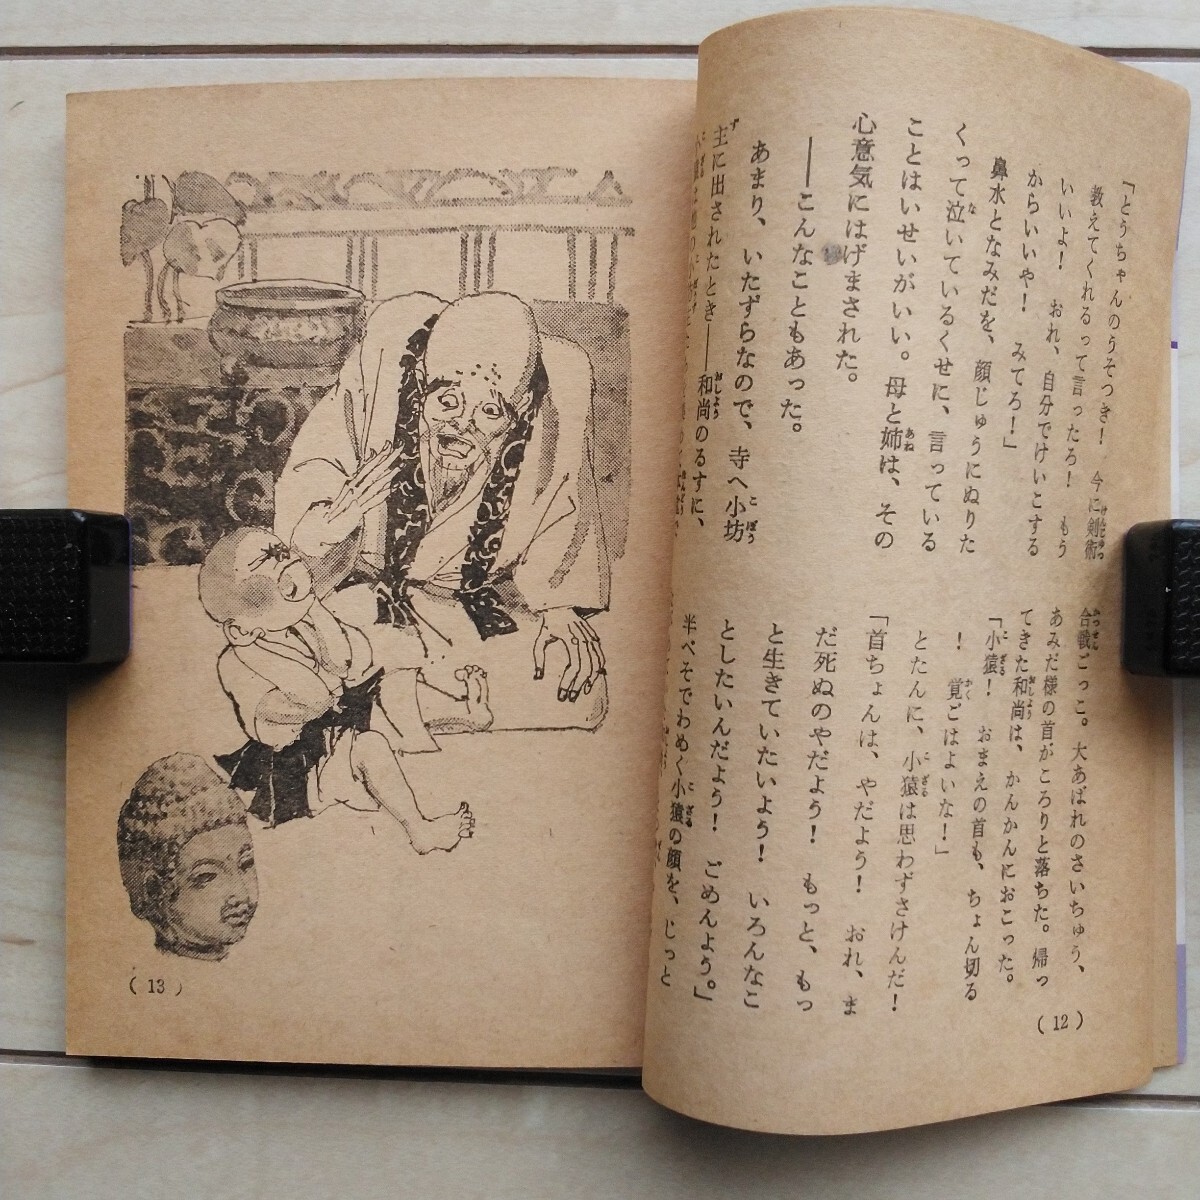 「とうちゃんのうそつき！　今に剣術
教えてくれるって言ったろ！　もう
いいよ！　おれ、自分でけいこする
からいいや！　みてろ！」
鼻水となみだを、顔じゅうにぬりた
くって泣いているくせに、言っている
ことはいせいがいい。母と姉は、その
心意気にはげまされた。
――こんなこともあった。
あまり、いたずらなので、寺へ小坊
主に出されたとき――和尚のるすに、
合戦ごっこ。大あばれのさいちゅう、
あみだ様の首がころりと落ちた。帰っ
てきた和尚は、かんかんにおこった。
「小猿！　おまえの首も、ちょん切る
！　覚ごはよいな！」
とたんに、小猿は思わずさけんだ！
「首ちょんは、やだよう！　おれ、ま
だ死ぬのやだよう！　もっと、もっ
と生きていたいよう！　いろんなこ
としたいんだよう！　ごめんよう。」
半べそでわめく小猿の顔を、じっと
(12)
(13)